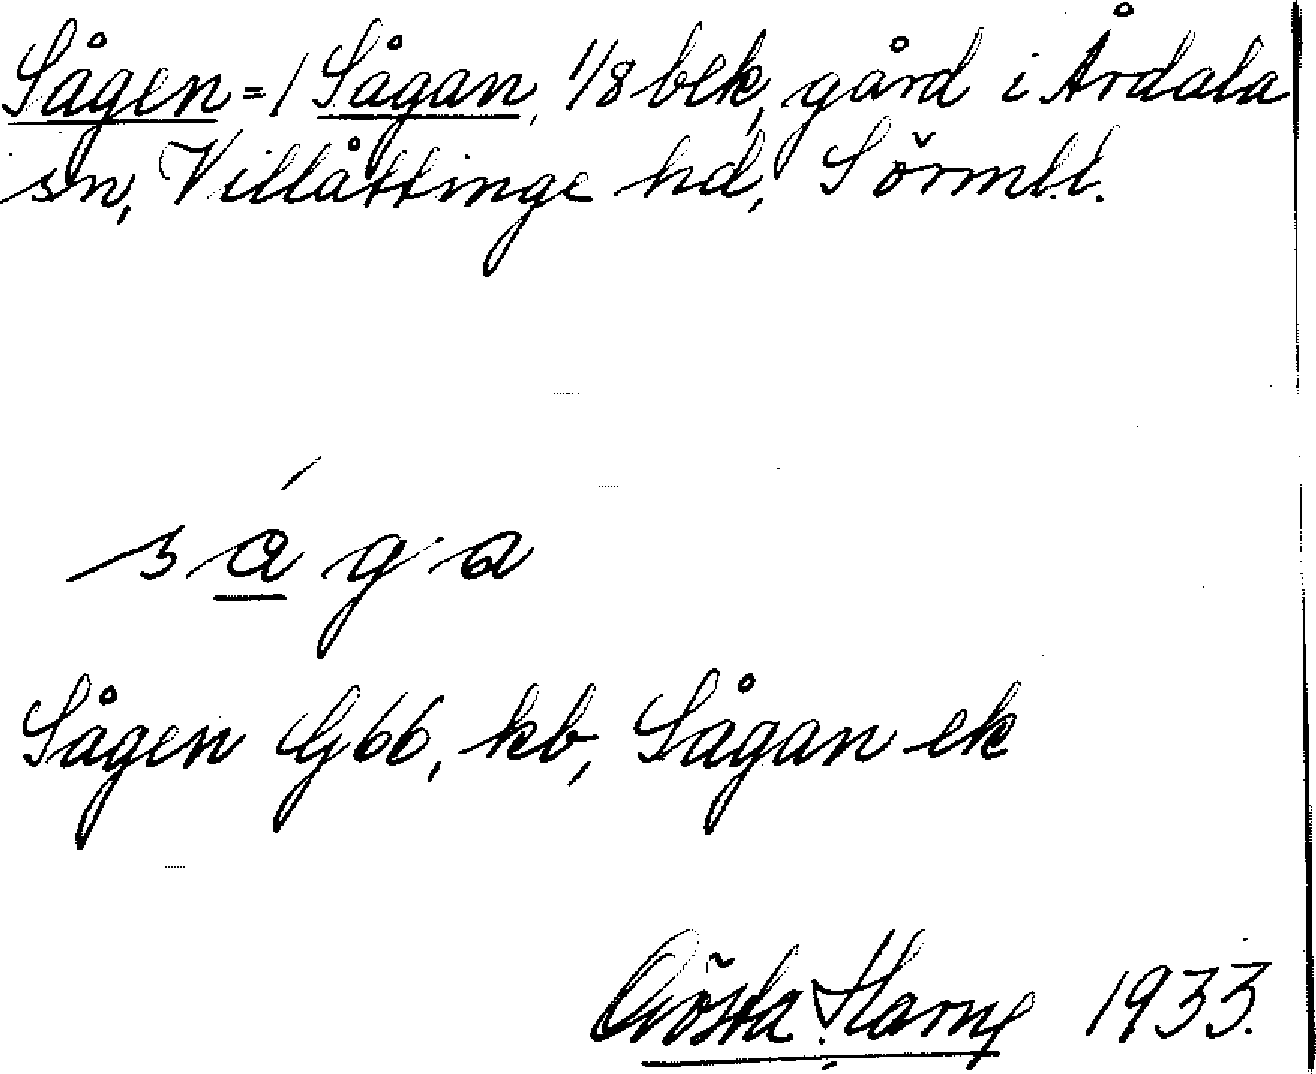 Sågen = / Sågan, 1/8 bek, gård i Årdala
sn, Villåttinge hd, Sörml.l.
såga
Sågen G66, kb, Sågan ek
Gösta 1933.